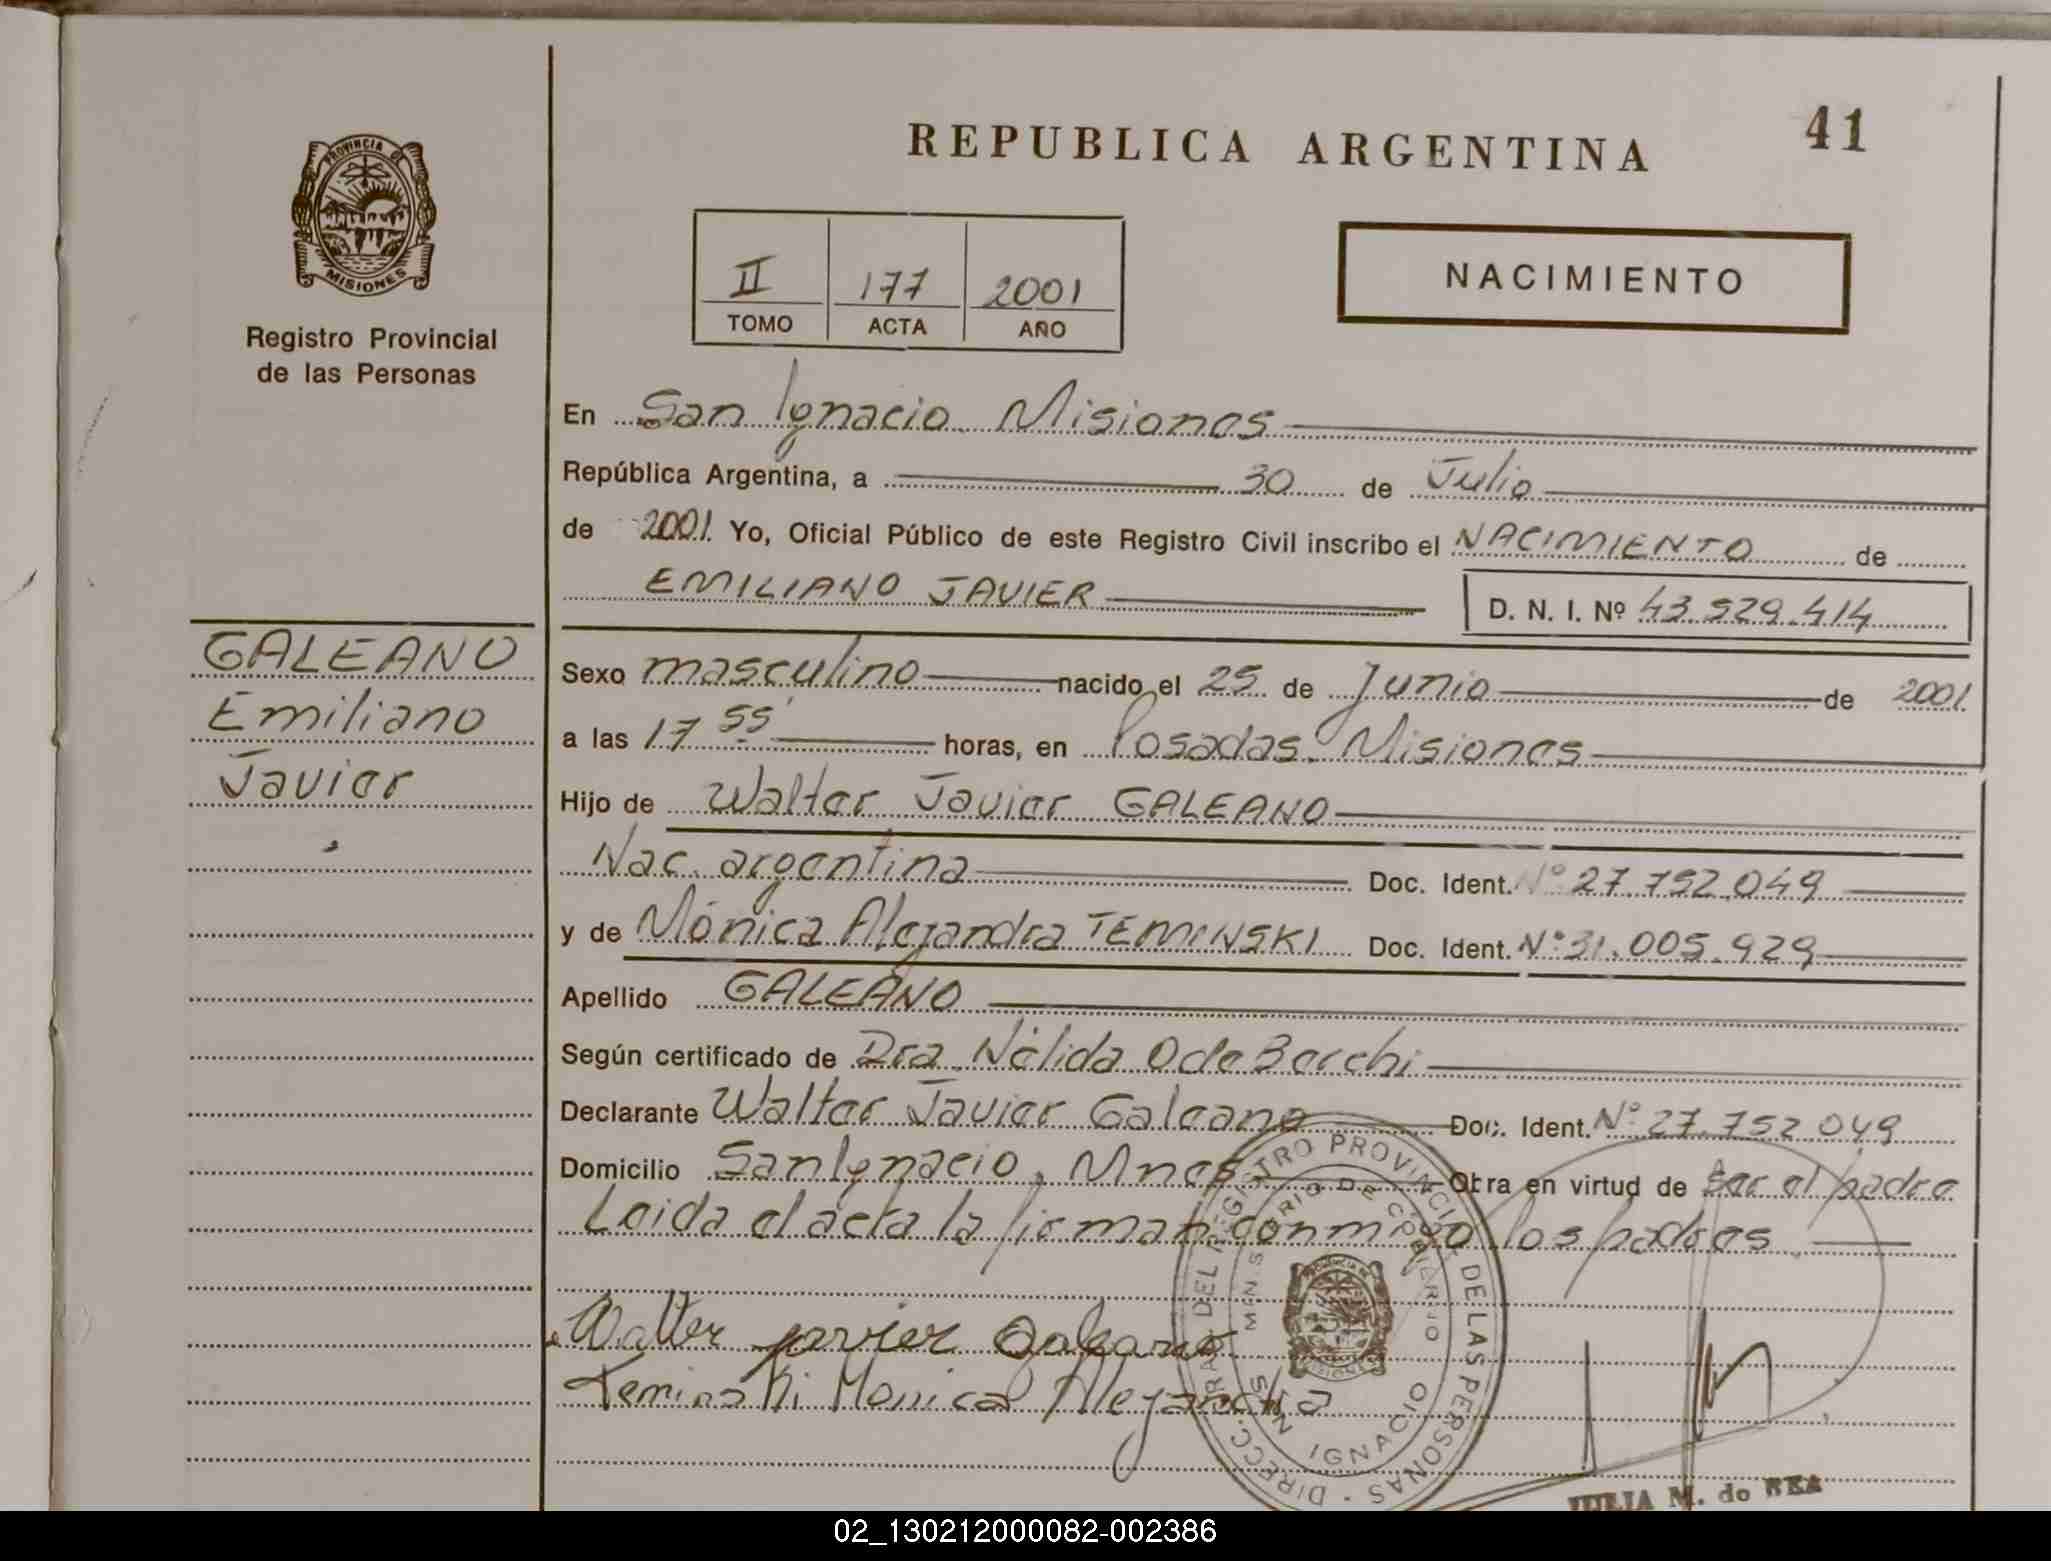 REPUBLICA ARGENTINA
41
PROVINCIA DE
MISIONES
Registro Provincial
de las Personas
II 177 2001
TOMO ACTA AÑO
NACIMIENTO
En San Ignacio. Misiones
República Argentina, a 30 de Julio
de 2001. Yo, Oficial Público de este Registro Civil inscribo el NACIMIENTO de
EMILIANO JAVIER
D. N. I. Nº 43.529.414
GALEANO
Emiliano
Javier
Sexo masculino nacido el 25 de Junio de 2001.
a las 17 55' horas, en Posadas. Misiones
Hijo de Walter Javier GALEANO
Nac. argentina Doc. Ident. Nº 27.752.049
y de Mónica Alejandra TEMINSKI Doc. Ident. Nº 31.005.929
Apellido GALEANO
Según certificado de Dra. Nélida O de Becchi
Declarante Walter Javier Galeano Doc. Ident. Nº 27.752.049
Domicilio San Ignacio, Mnes Obra en virtud de ser el padre
Leida el acta la firman conmigo los padres
Walter javier Galeano
Teminski Monica Alejandra
DIRECC. GRAL. DEL REGISTRO PROVINCIAL DE LAS PERSONAS
IGNACIO
M. do REA
02_130212000082-002386